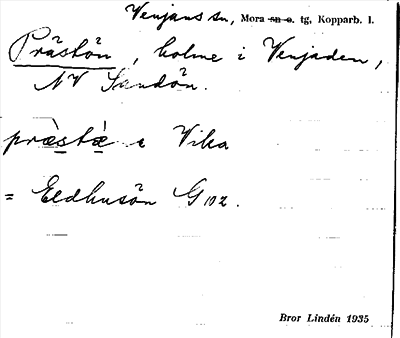 Venjans sn, Mora sn o. tg, Kopparb. l.
Prästön, holme i Venjaden,
NV Sandön.
præ̀stǽ i Vika
= Eldhusön G 102.
Bror Lindén 1935